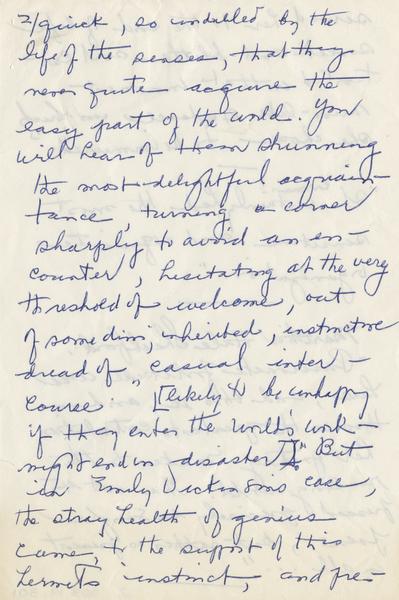 2/quick, so undulled by the
life of the senses, that they
never quite acquire the
easy part of the world. You
will hear of them shunning
the most delightful acquain-
tance, turning a corner
sharply to avoid an en-
counter, hesitating at the very
threshold of welcome, out
of some dim, inherited, instinctive
dread of "casual inter-
course. [likely to be unhappy
if they enter the world's work -
might end in disaster]." But
in Emily Dickinson's case,
the stray health of genius
came, to the support of this
hermit's instinct, and pre-